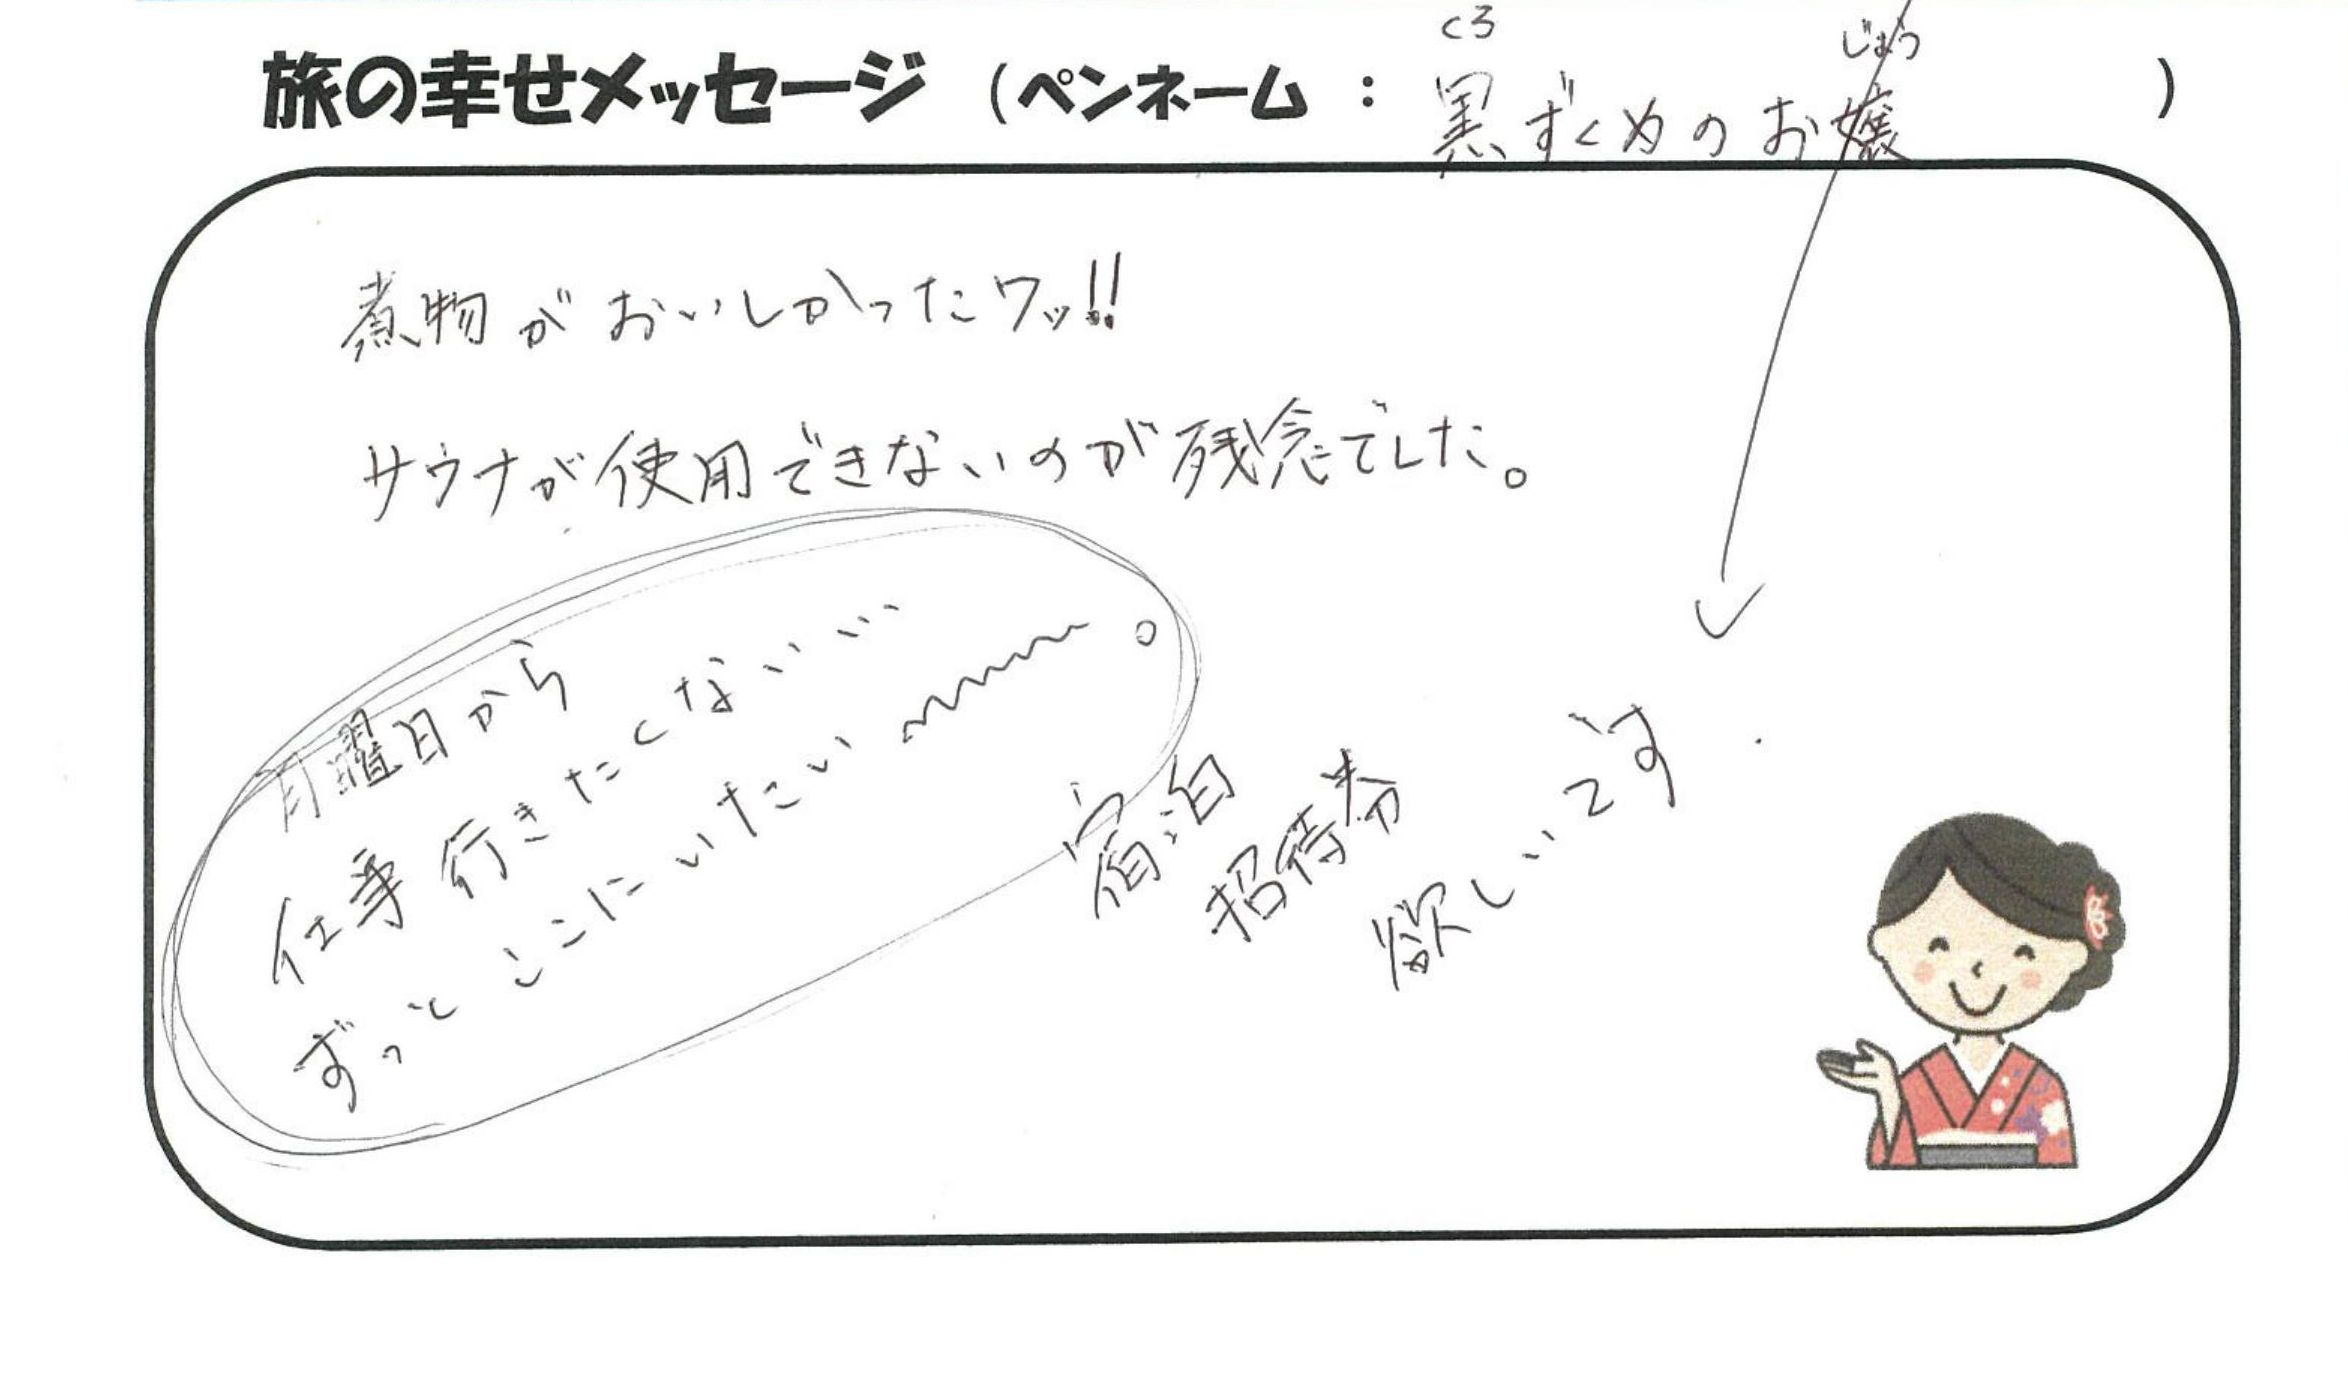 旅の幸せメッセージ (ペンネーム : 黒ずくめのお嬢 )
くろ じょう
煮物がおいしかったワッ!!
サウナが使用できないのが残念でした。
月曜日から
仕事行きたくない…
ずっとここにいたい〜〜〜。
宿泊
招待券
欲しいです